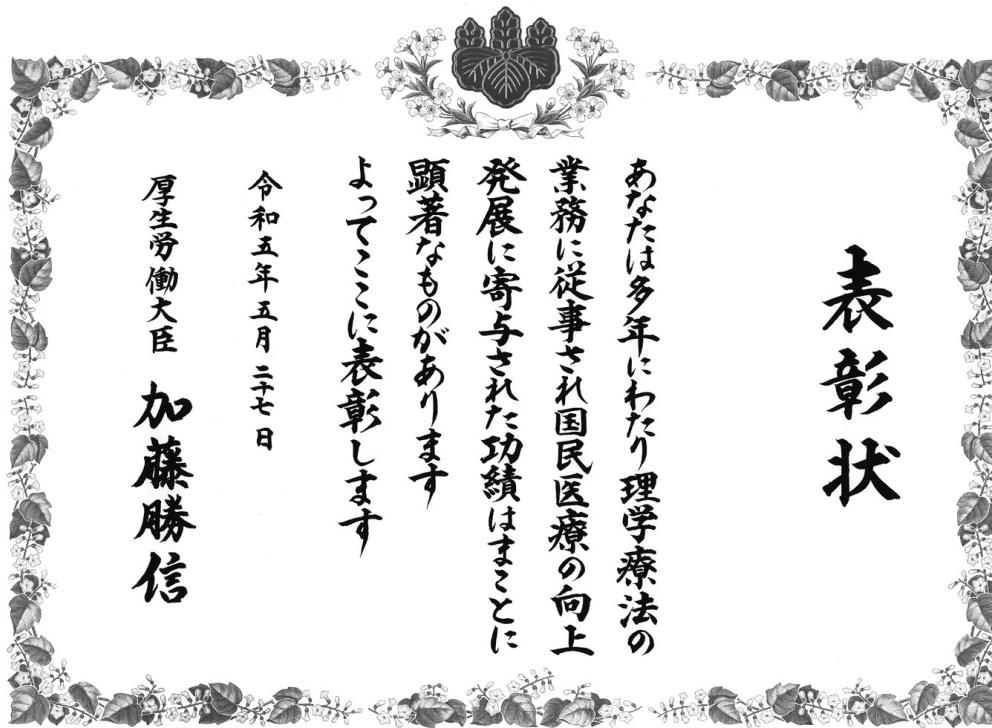 表彰状
あなたは多年にわたり理学療法の
業務に従事され国民医療の向上
発展に寄与された功績はまことに
顕著なものがあります
よってここに表彰します
令和五年五月二十七日
厚生労働大臣 加藤勝信